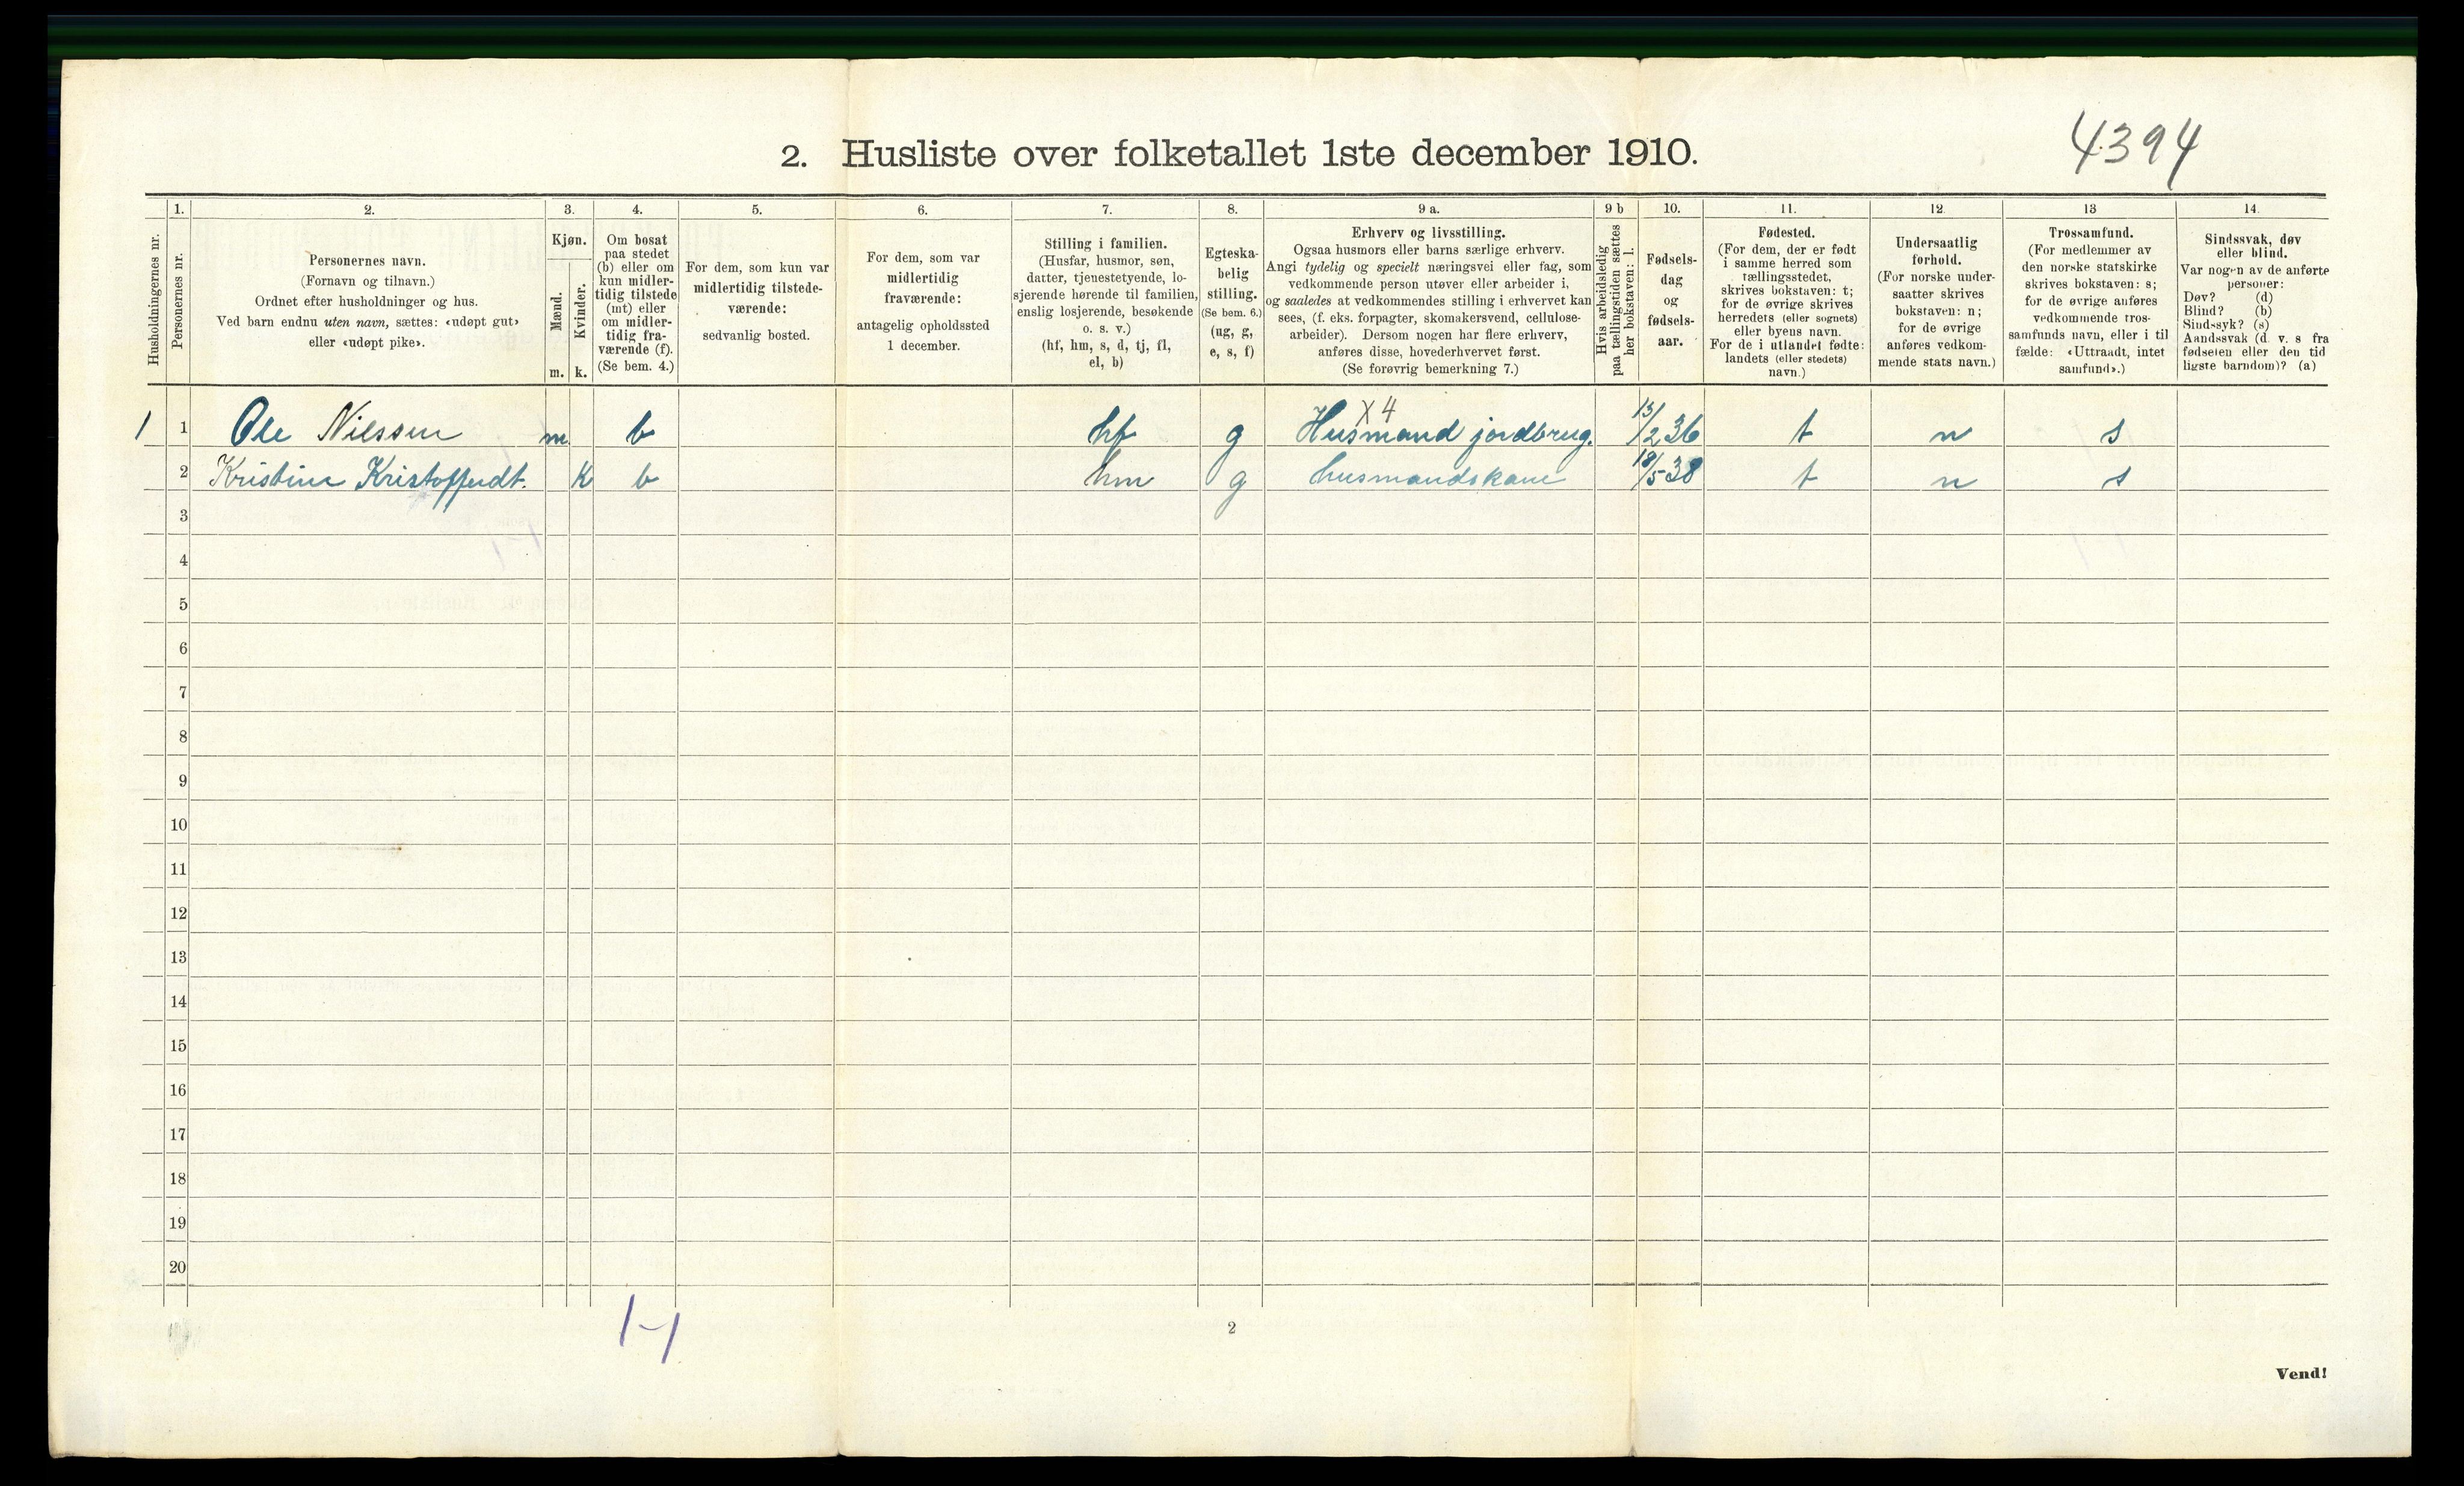 4394
2. Husliste over folketallet 1ste december 1910.
1. 2. 3. 4. 5. 6. 7. 8. 9 a. 9 b 10. 11. 12. 13 14.
Husholdningernes nr.
Personernes nr.
Personernes navn.
(Fornavn og tilnavn.)
Ordnet efter husholdninger og hus.
Ved barn endnu uten navn, sættes: «udøpt gut»
eller «udøpt pike».
Kjøn.
Mænd.
Kvinder.
m. k.
Om bosat
paa stedet
(b) eller om
kun midler-
tidig tilstede
(mt) eller
om midler-
tidig fra-
værende (f).
(Se bem. 4.)
For dem, som kun var
midlertidig tilstede-
værende:
sedvanlig bosted.
For dem, som var
midlertidig
fraværende:
antagelig opholdssted
1 december.
Stilling i familien.
(Husfar, husmor, søn,
datter, tjenestetyende, lo-
sjerende hørende til familien,
enslig losjerende, besøkende
o. s. v.)
(hf, hm, s, d, tj, fl,
el, b)
Egteska-
belig
stilling.
(Se bem. 6.)
(ug, g,
e, s, f)
Erhverv og livsstilling.
Ogsaa husmors eller barns særlige erhverv.
Angi tydelig og specielt næringsvei eller fag, som
vedkommende person utøver eller arbeider i,
og saaledes at vedkommendes stilling i erhvervet kan
sees, (f. eks. forpagter, skomakersvend, cellulose-
arbeider). Dersom nogen har flere erhverv,
anføres disse, hovederhvervet først.
(Se forøvrig bemerkning 7.)
Hvis arbeidsledig
paa tællingstiden sættes
her bokstaven: l.
Fødsels-
dag
og
fødsels-
aar.
Fødested.
(For dem, der er født
i samme herred som
tællingsstedet,
skrives bokstaven: t;
for de øvrige skrives
herredets (eller sognets)
eller byens navn.
For de i utlandet fødte:
landets (eller stedets)
navn.)
Undersaatlig
forhold.
(For norske under-
saatter skrives
bokstaven: n;
for de øvrige
anføres vedkom-
mende stats navn.)
Trossamfund.
(For medlemmer av
den norske statskirke
skrives bokstaven: s;
for de øvrige anføres
vedkommende tros-
samfunds navn, eller i til
fælde: «Uttraadt, intet
samfund».)
Sindssvak, døv
eller blind.
Var nogen av de anførte
personer:
Døv? (d)
Blind? (b)
Sindssyk? (s)
Aandssvak (d. v. s fra
fødselen eller den tid
ligste barndom)? (a)
X 4
1 1 Ole Nilssen m b hf g Husmand jordbrug. 13/2 36 t n s
2 Kristine Kristoffersdt. k b hm g husmandskone 18/5 38 t n s
3
4
5
6
7
8
9
10
11
12
13
14
15
16
17
18
19
20
1-1
2
Vend!